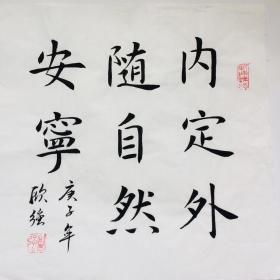 内定外
随自然
安寧
庚子年
欧强